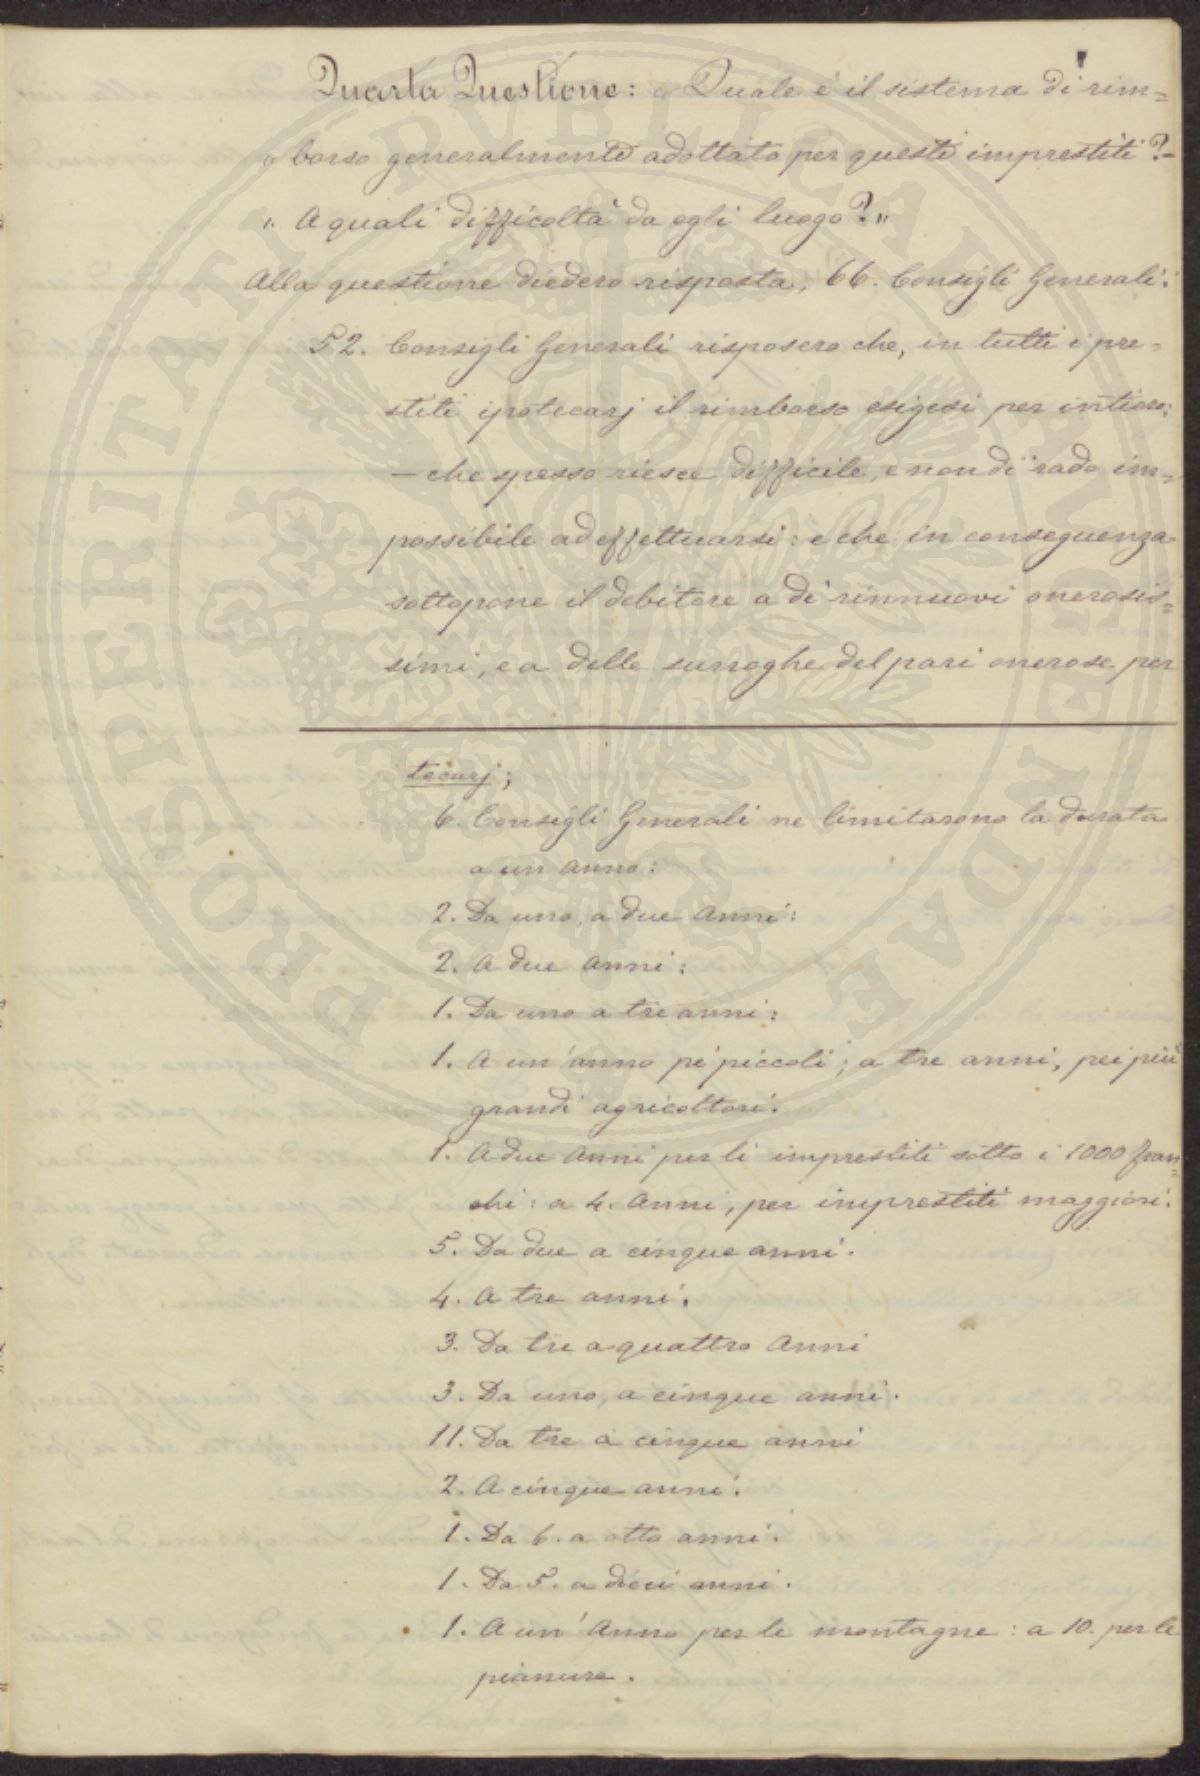 Quarta Questione: „ Quale è il sistema di rim=
„ borso generalmente adottato per questi imprestiti?
„ A quali difficoltà da egli luogo?„
Alla questione diedero risposta, 66. Consigli Generali:
52. Consigli Generali risposero che, in tutti i pre=
stiti ipotecarj il rimborso esigesi per intiero:
— che spesso riesce difficile, e non di rado im=
possibile ad effettuarsi: e che in conseguenza
sottopone il debitore a di rinnuovi onerosis=
simi, e a delle surroghe del pari onerose per
tecarj;
6. Consigli Generali ne limitarono la durata
a un anno:
2. Da uno, a due anni:
2. A due anni:
1. Da uno a tre anni:
1. A un'anno pe' piccoli; a tre anni, pei più
grandi agricoltori.
1. A due anni per li imprestiti sotto i 1000 fran=
chi: a 4. Anni, per imprestiti maggiori.
5. Da due a cinque anni.
4. A tre anni.
3. Da tre a quattro Anni
3. Da uno, a cinque anni.
11. Da tre a cinque anni
2. A cinque anni.
1. Da 6. a otto anni.
1. Da 5. a dieci anni.
1. A un'Anno per le montagne: a 10. per le
pianure.
PROSPERITATI PUBLICAE AUGENDAE